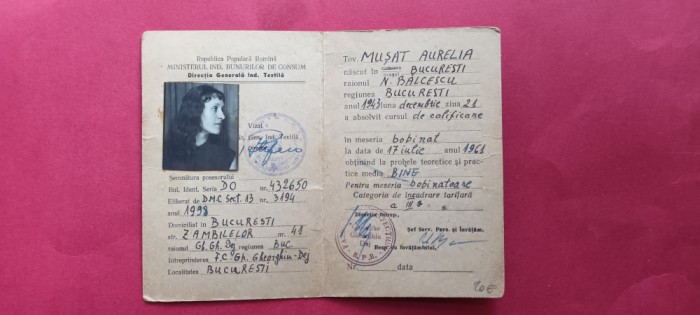 Republica Populară Romînă
MINISTERUL IND. BUNURILOR DE CONSUM
Direcția Generală Ind. Textilă
Vizat
Semnătura posesorului
Bul. Ident. Seria DO nr. 432650
Eliberat de DMC Sect. 13 nr. 3194
anul
Domiciliat în BUCUREȘTI
str. ZAMBILELOR nr. 41
raionul Gh. Gh. Dej regiunea BUC
Intreprinderea F.C. Gh. Gheorghiu-Dej
Localitatea BUCUREȘTI
Tov. MUȘAT AURELIA
născut în BUCUREȘTI
raionul N. BALCESCU
regiunea BUCUREȘTI
anul 1943 luna decembrie ziua 21
a absolvit cursul de calificare
în meseria bobinat
la data de 17 iulie anul 1961
obținînd la probele teoretice și prac-
tice media BINE
Pentru meseria bobinatoare
Categoria de încadrare tarifară
a III a
Director întrep.
Șef Serv. Pers. și Învățăm.
Resp. cu învățămîntul,
R.P.R.
Nr. data
20€